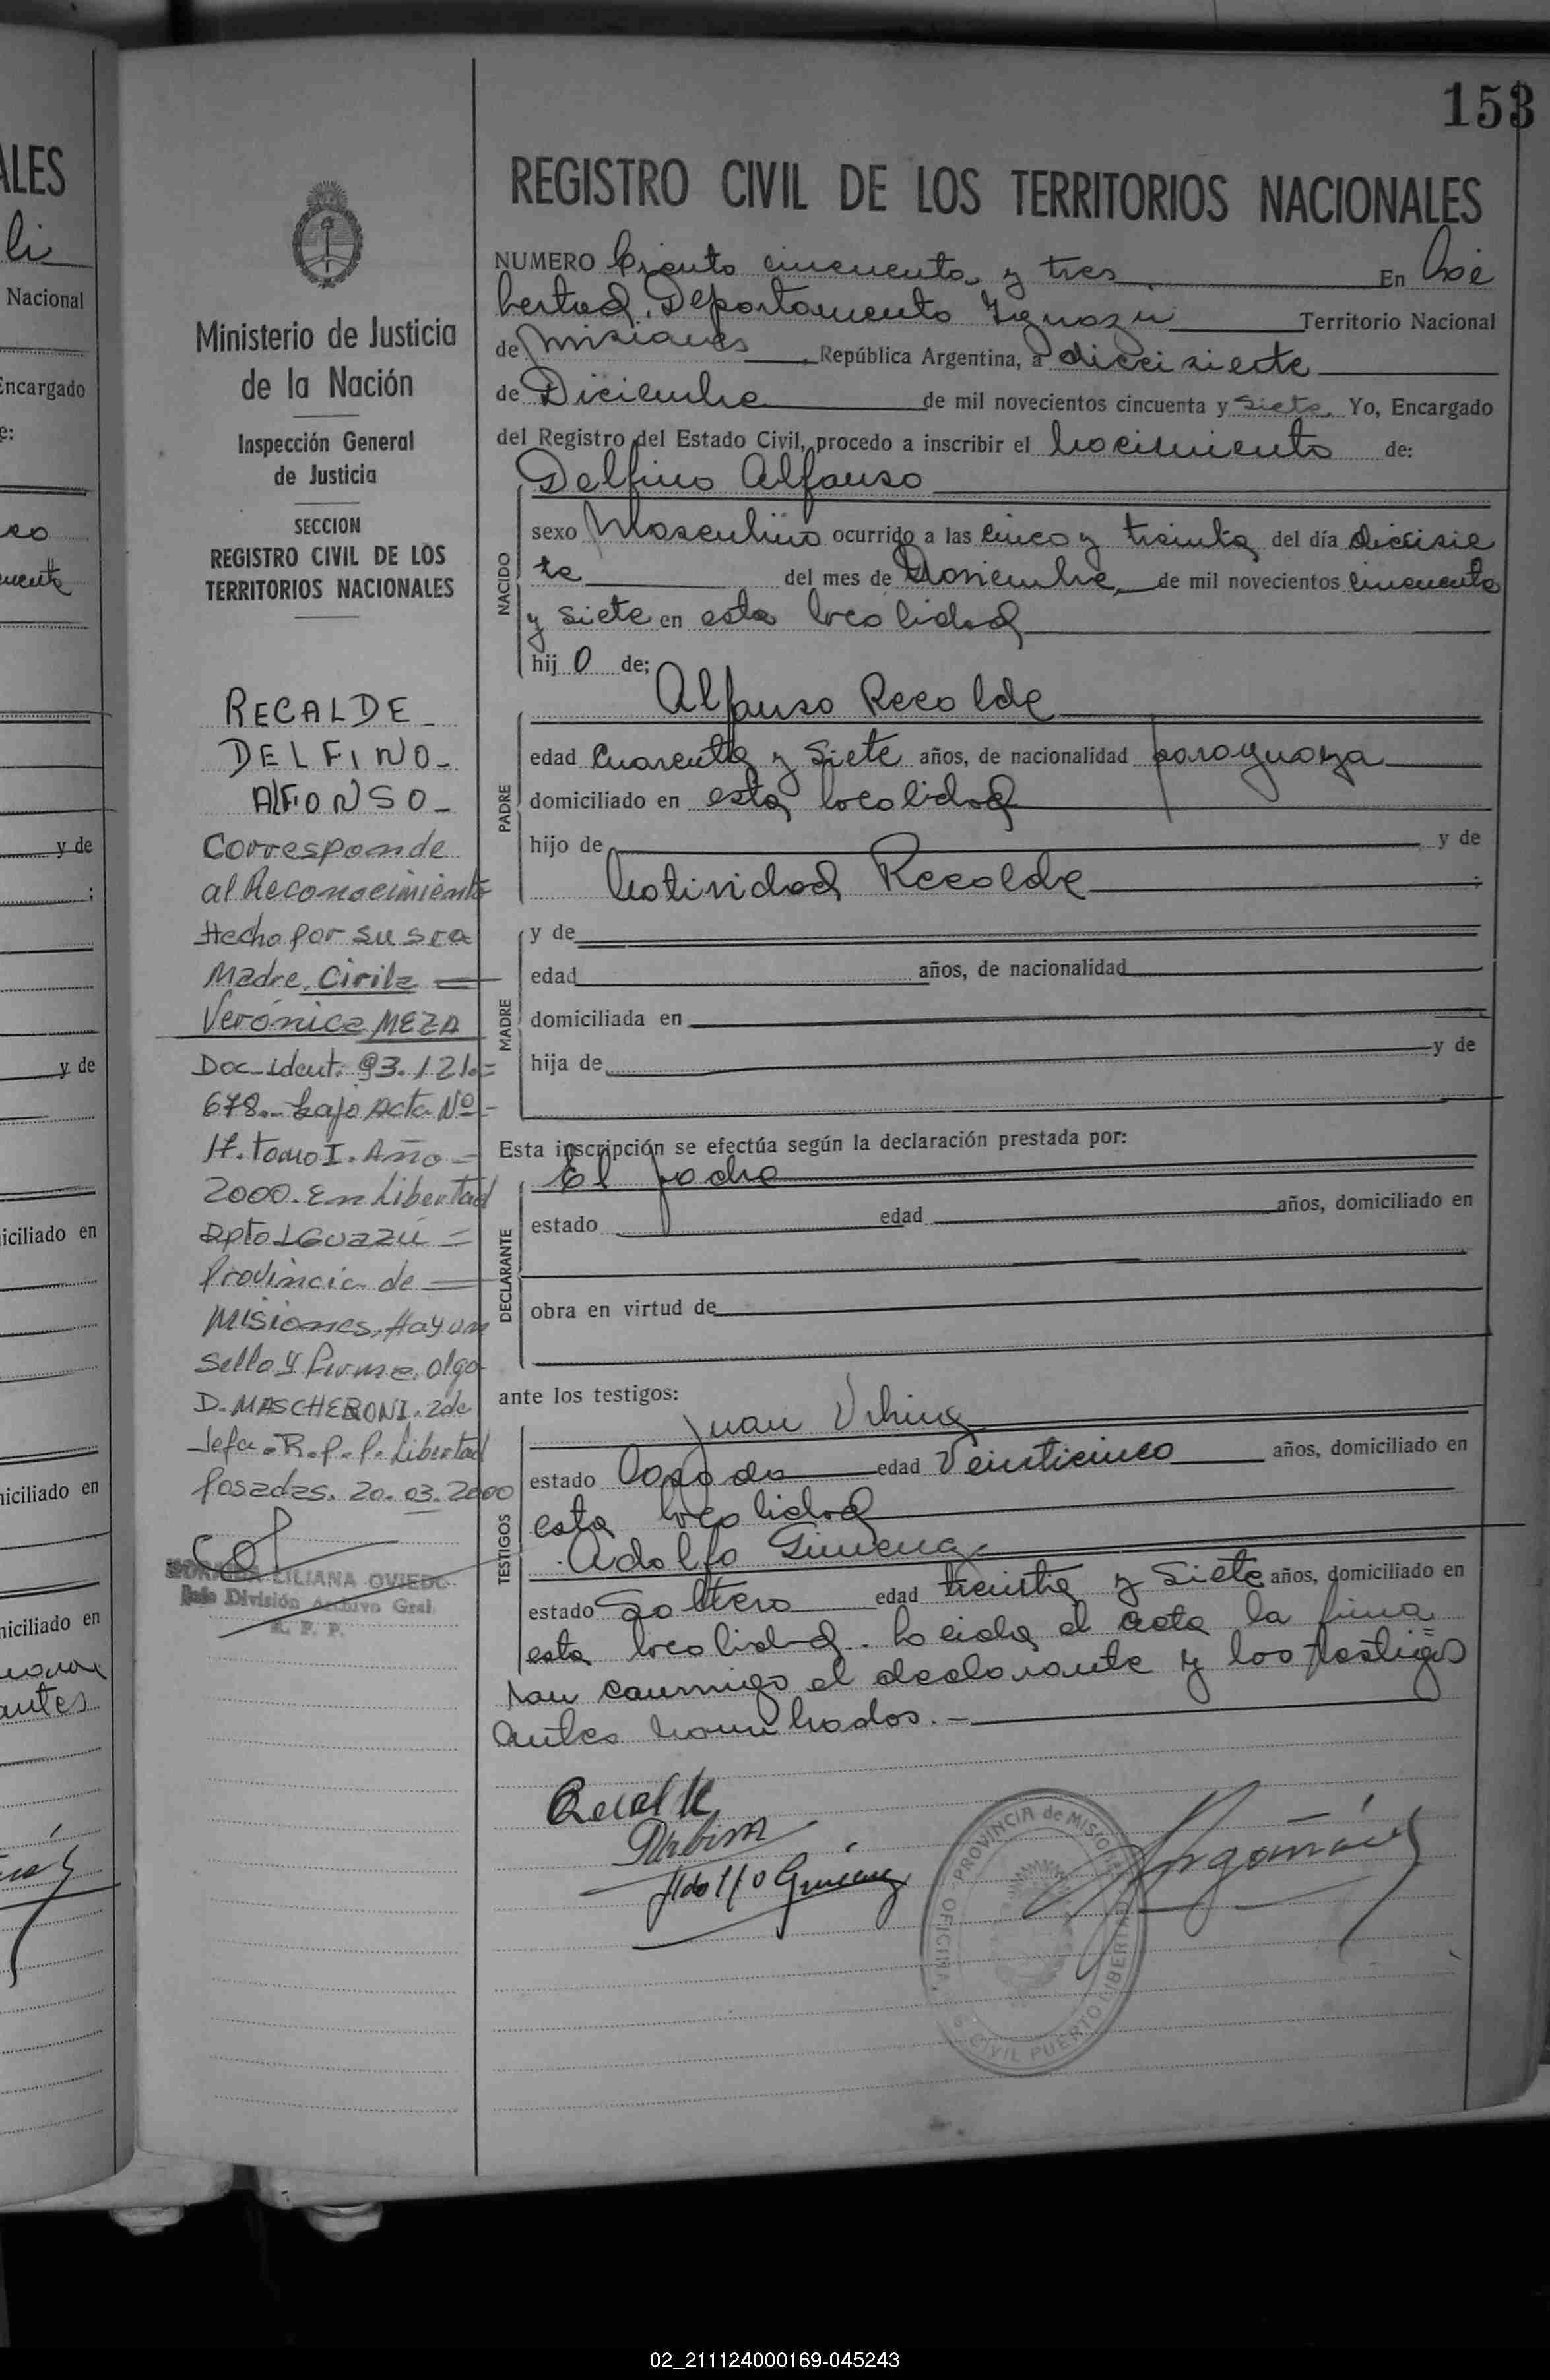 ALES
li
Nacional
Encargado
e:
y de
y de
iciliado en
niciliado en
niciliado en
antes
153
REGISTRO CIVIL DE LOS TERRITORIOS NACIONALES
Ministerio de Justicia
de la Nación
Inspección General
de Justicia
SECCION
REGISTRO CIVIL DE LOS
TERRITORIOS NACIONALES
RECALDE
DELFINO-
ALFONSO-
Corresponde
al Reconocimiento
Hecho por su sra
Madre, Cirila =
Verónica MEZA
Doc-ident. 93.121.=
678.- bajo Acta Nº-
17. tomo I. Año -
2000. En Libertad
Dpto IGuazú =
Provincia de =
Misiones. Hay un
sello y firma. Olga
D. MASCHERONI. 2da
Jefa. R.P.P. Libertad
Posadas. 20.03.2000
LILIANA OVIEDO
Jefe División Archivo Gral.
R. P. P.
NUMERO Ciento cincuenta y tres En Li
bertad, Departamento Iguazu Territorio Nacional
de Misiones, República Argentina, a diecisiete
de Diciembre de mil novecientos cincuenta y siete. Yo, Encargado
del Registro del Estado Civil, procedo a inscribir el nacimiento de:
Delfino Alfonso
NACIDO
sexo Masculino ocurrido a las cinco y treinta del día diecisie
te del mes de Noviembre de mil novecientos cincuenta
y siete en esta localidad
hijo de;
Alfonso Recalde
PADRE
edad cuarenta y siete años, de nacionalidad paraguaya
domiciliado en esta localidad
hijo de y de
Natividad Recalde
MADRE
y de
edad años, de nacionalidad
domiciliada en
hija de y de
Esta inscripción se efectúa según la declaración prestada por:
El padre
DECLARANTE
estado edad años, domiciliado en
obra en virtud de
ante los testigos:
Juan
TESTIGOS
estado Casado edad Veinticinco años, domiciliado en
esta localidad
Adolfo Gimenez
estado Soltero edad treinta y siete años, domiciliado en
esta localidad. Leida el acta la firma
ron conmigo el declarante y los testigos
antes nombrados.-
Recalde
Adolfo Gimenez
PROVINCIA de MISIONES
OFICINA
CIVIL PUERTO LIBERTAD
02_211124000169-045243